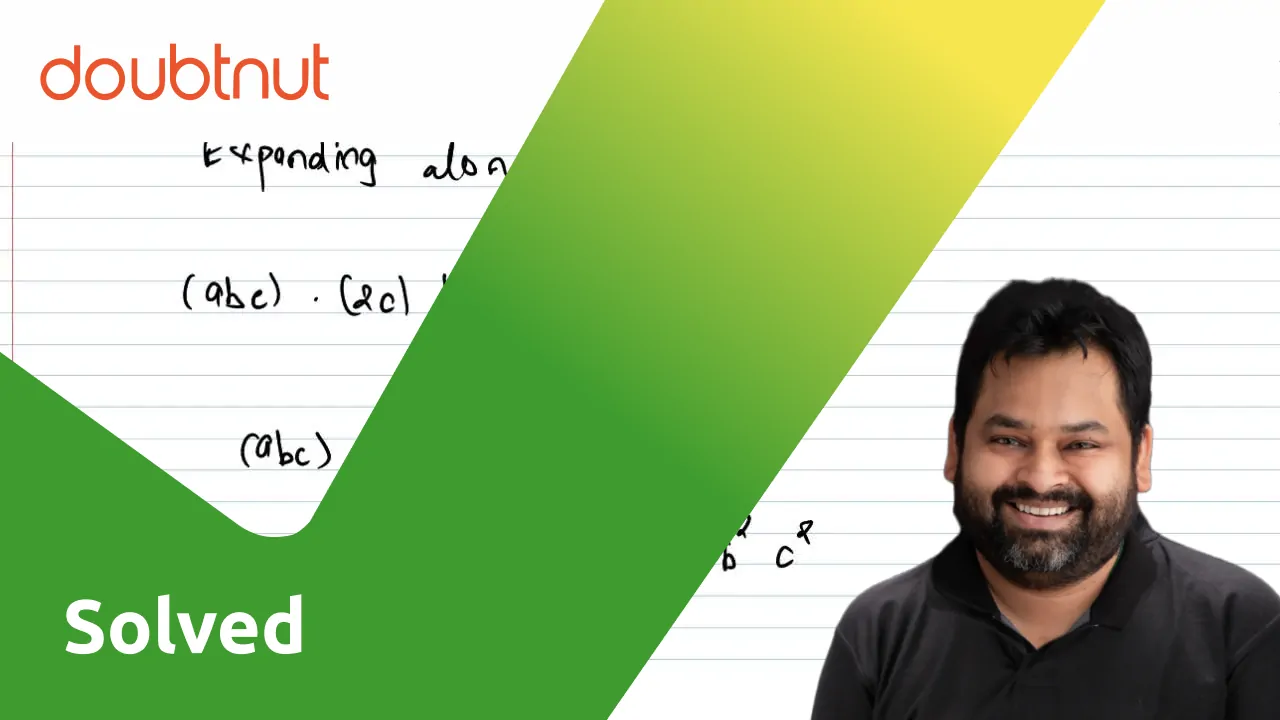 doubtnut
Expanding alon
(abc) . (2c)
(abc)
b² c²
Solved